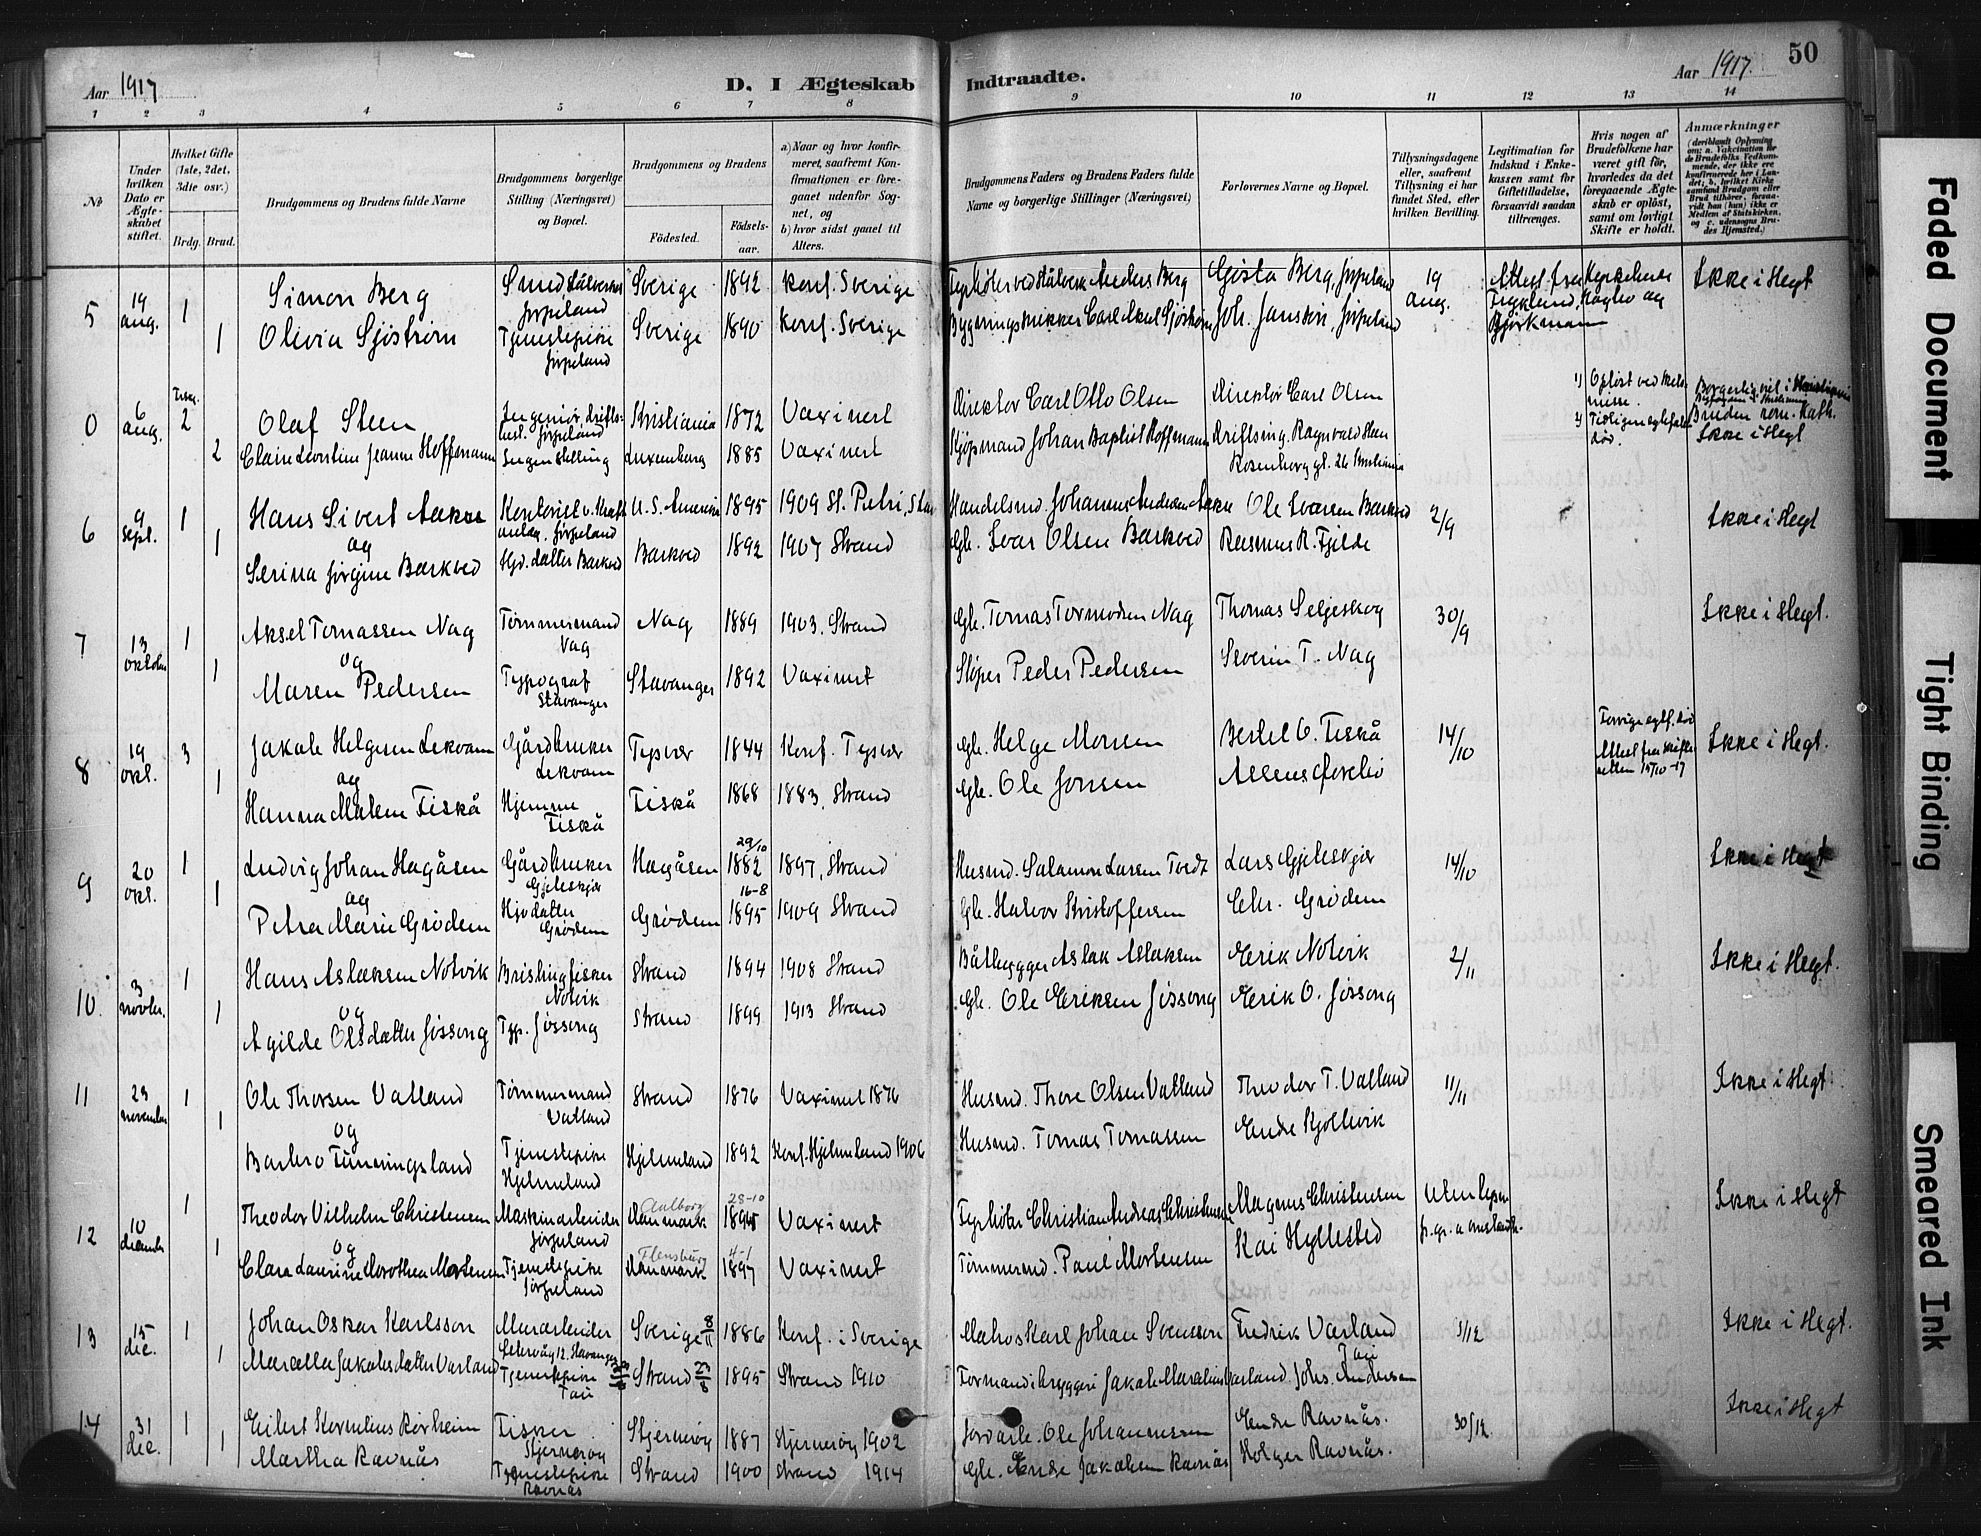 Aar 1917
D. I Ægteskab Indtraadte.
Aar 1917.
50
1 2 3 4 5 6 7 8 9 10 11 12 13 14
No
Under hvilken Dato er Ægteskabet stiftet.
Hvilket Gifte (1ste, 2det, 3die osv.)
Brdg. Brud.
Brudgommens og Brudens fulde Navne
Brudgommens borgerlige Stilling (Næringsvei) og Bopæl.
Brudgommens og Brudens
Födested.
Födselsaar.
a) Naar og hvor konfirmeret, saafremt Konfirmationen er foregaaet udenfor Sognet, og
b) hvor sidst gaaet til Alters.
Brudgommens Faders og Brudens Faders fulde Navne og borgerlige Stillinger (Næringsvei)
Forlovernes Navne og Bopæl.
Tillysningsdagene eller, saafremt Tillysning ei har fundet Sted, efter hvilken Bevilling.
Legitimation for Indskud i Enkekassen samt for Giftetilladelse, forsaavidt saadan tiltrænges.
Hvis nogen af Brudefolkene har været gift för, hvorledes da det foregaaende Ægteskab er oplöst, samt om lovligt Skifte er holdt.
Anmærkninger
5 19 aug. 1 Simon Berg Smed Stålverket Jørpeland Sverige 1892 Konf. Sverige Fyrbøter ved Stålverk Anders Berg Gösta Berg, Jørpeland 19 aug. Attest fra Ikke i Slegt
1 Olivia Sjöström Tjenestepike Jørpeland Sverige 1890 Konf. Sverige Bygningssnikker Carl Axel Sjöström Joh. Jansson, Jørpeland Björkman
0 6 aug. 2 Olaf Steen Ingeniør, driftsbest. Jørpeland Kristiania 1872 Vaxinert Direktør Carl Otto Olsen Direktør Carl Olsen 1) Opløst ved Borgerlig viet i Kristiania
2 Claire Leontine Jeanne Hoffmann Ingen stilling Luxenburg 1885 Vaxinert Kjøpmand Johan Baptist Hoffmann Driftsing. Ragnvald Steen Rosenborg gt. 26 Kristiania død. Bruden rom. kath. Ikke i Slegt
6 9 sept. 1 Hans Sivert Aakre Kontorist v. Kraftanlæg. Jørpeland U. S. Amerika 1895 1909 St. Petri, Stav Handelsmd. Johannes Andersen Aakre Ole Svarsen Barkved 2/9 Ikke i Slegt
og
1 Serina Jørgine Barkved Hjv. datter Barkved Barkved 1892 1907 Strand Gbr. Ivar Olsen Barkved Rasmus R. Fjelde
7 13 oktober 1 Aksel Tomassen Nag Tømmermand Nag Nag 1889 1903. Strand Gbr. Tomas Tormodsen Nag Thomas Seljeskog 30/9 Ikke i Slegt.
og
1 Maren Pedersen Typograf Stavanger Stavanger 1892 Vaxinert Støper Peder Pedersen Severin T. Nag
8 19 okt. 3 Jakob Helgesen Lekvam Gårdbruker Lekvam Tysvær 1844 Konf. Tysvær Gbr. Helge Monsen Bertel O. Fiskå 14/10 Forrige egtf. død Ikke i Slegt.
og
1 Hanna Malene Fiskå Hjemme Fiskå Fiskå 1868 1883, Strand Gbr. Ole Jonsen Attest fra skifteretten 15/10-17
9 20 okt. 1 Ludvig Johan Hagåsen Gårdbruker Gjeleskjær Hagåsen 29/10 1882 1897, Strand Husmd. Salamon Larsen Tvedt Lars Gjeleskjær 14/10 Ikke i Slegt
og
1 Petra Marie Grødem Hjv datter Grødem Grødem 16-8 1895 1909 Strand Gbr. Halvor Kristoffersen Chr. Grødem
10. 3 novbr. 1 Hans Aslaksen Notvik Brislingfisker Notvik Strand 1894 1908 Strand Båtbygger Aslak Aslaksen Eerik Notvik 2/11 Ikke i Slegt.
og
1 Agilde Olsdatter Jøssong Typ. Jøssong Strand 1899 1913 Strand Gbr. Ole Eeriksen Jøssong Eerik O. Jøssong
11 23 november 1 Ole Thorsen Valland Tømmermand Valland Strand 1876 Vaxinert 1876 Husmd. Thore Olsen Valland Theodor T. Valland 11/11 Ikke i Slegt.
og
1 Barbro Tungingsland Tjenestepike Hjelmeland Hjelmeland 1892 Konf. Hjelmeland 1906 Husmd. Tomas Tomassen Endre Kjølevik
12 10 december 1 Theodor Vilhelm Christensen Maskinarbeider Jørpeland Aalborg Danmark 28-10 1895 Vaxinert Fyrbøter Christian Andreas Christensen Magnus Christensen Uten lysn. p. gr. a. Ikke i Slegt
og
1 Clara Laurine Dorothea Mortensen Tjenestepike Jørpeland Flensburg Danmark 4-1 1897 Vaxinert Tømmermd. Paul Mortensen Kai Hyllested
13 15 dec. 1 Johan Oskar Karlsson Murarbeider Stavanger Sverige 8/11 1886 Konf. i Sverige Karl Johan Svensson Fredrik Varland Tau 2/12 Ikke i Slegt.
1 Marcella Jakobsdatter Varland Tjenestepike Tau Strand 23/8 1895 Strand 1910 Formand i bryggeri Jakob Varland. Johs. Andersen
14 31 dec. 1 Eilert Kornelius Rørheim Fisker Stjernerøy Stjernerøy 1887 Stjernerøy 1902 Jordarb. Ole Johannessen Endre Ravnås. 30/12 Ikke i Slegt
1 Martha Ravnås Tjenestepike Ravnås Strand 1900 Strand 1914 Gbr. Endre Jakobsen Ravnås Holger Ravnås.
Faded Document
Tight Binding
Smeared Ink